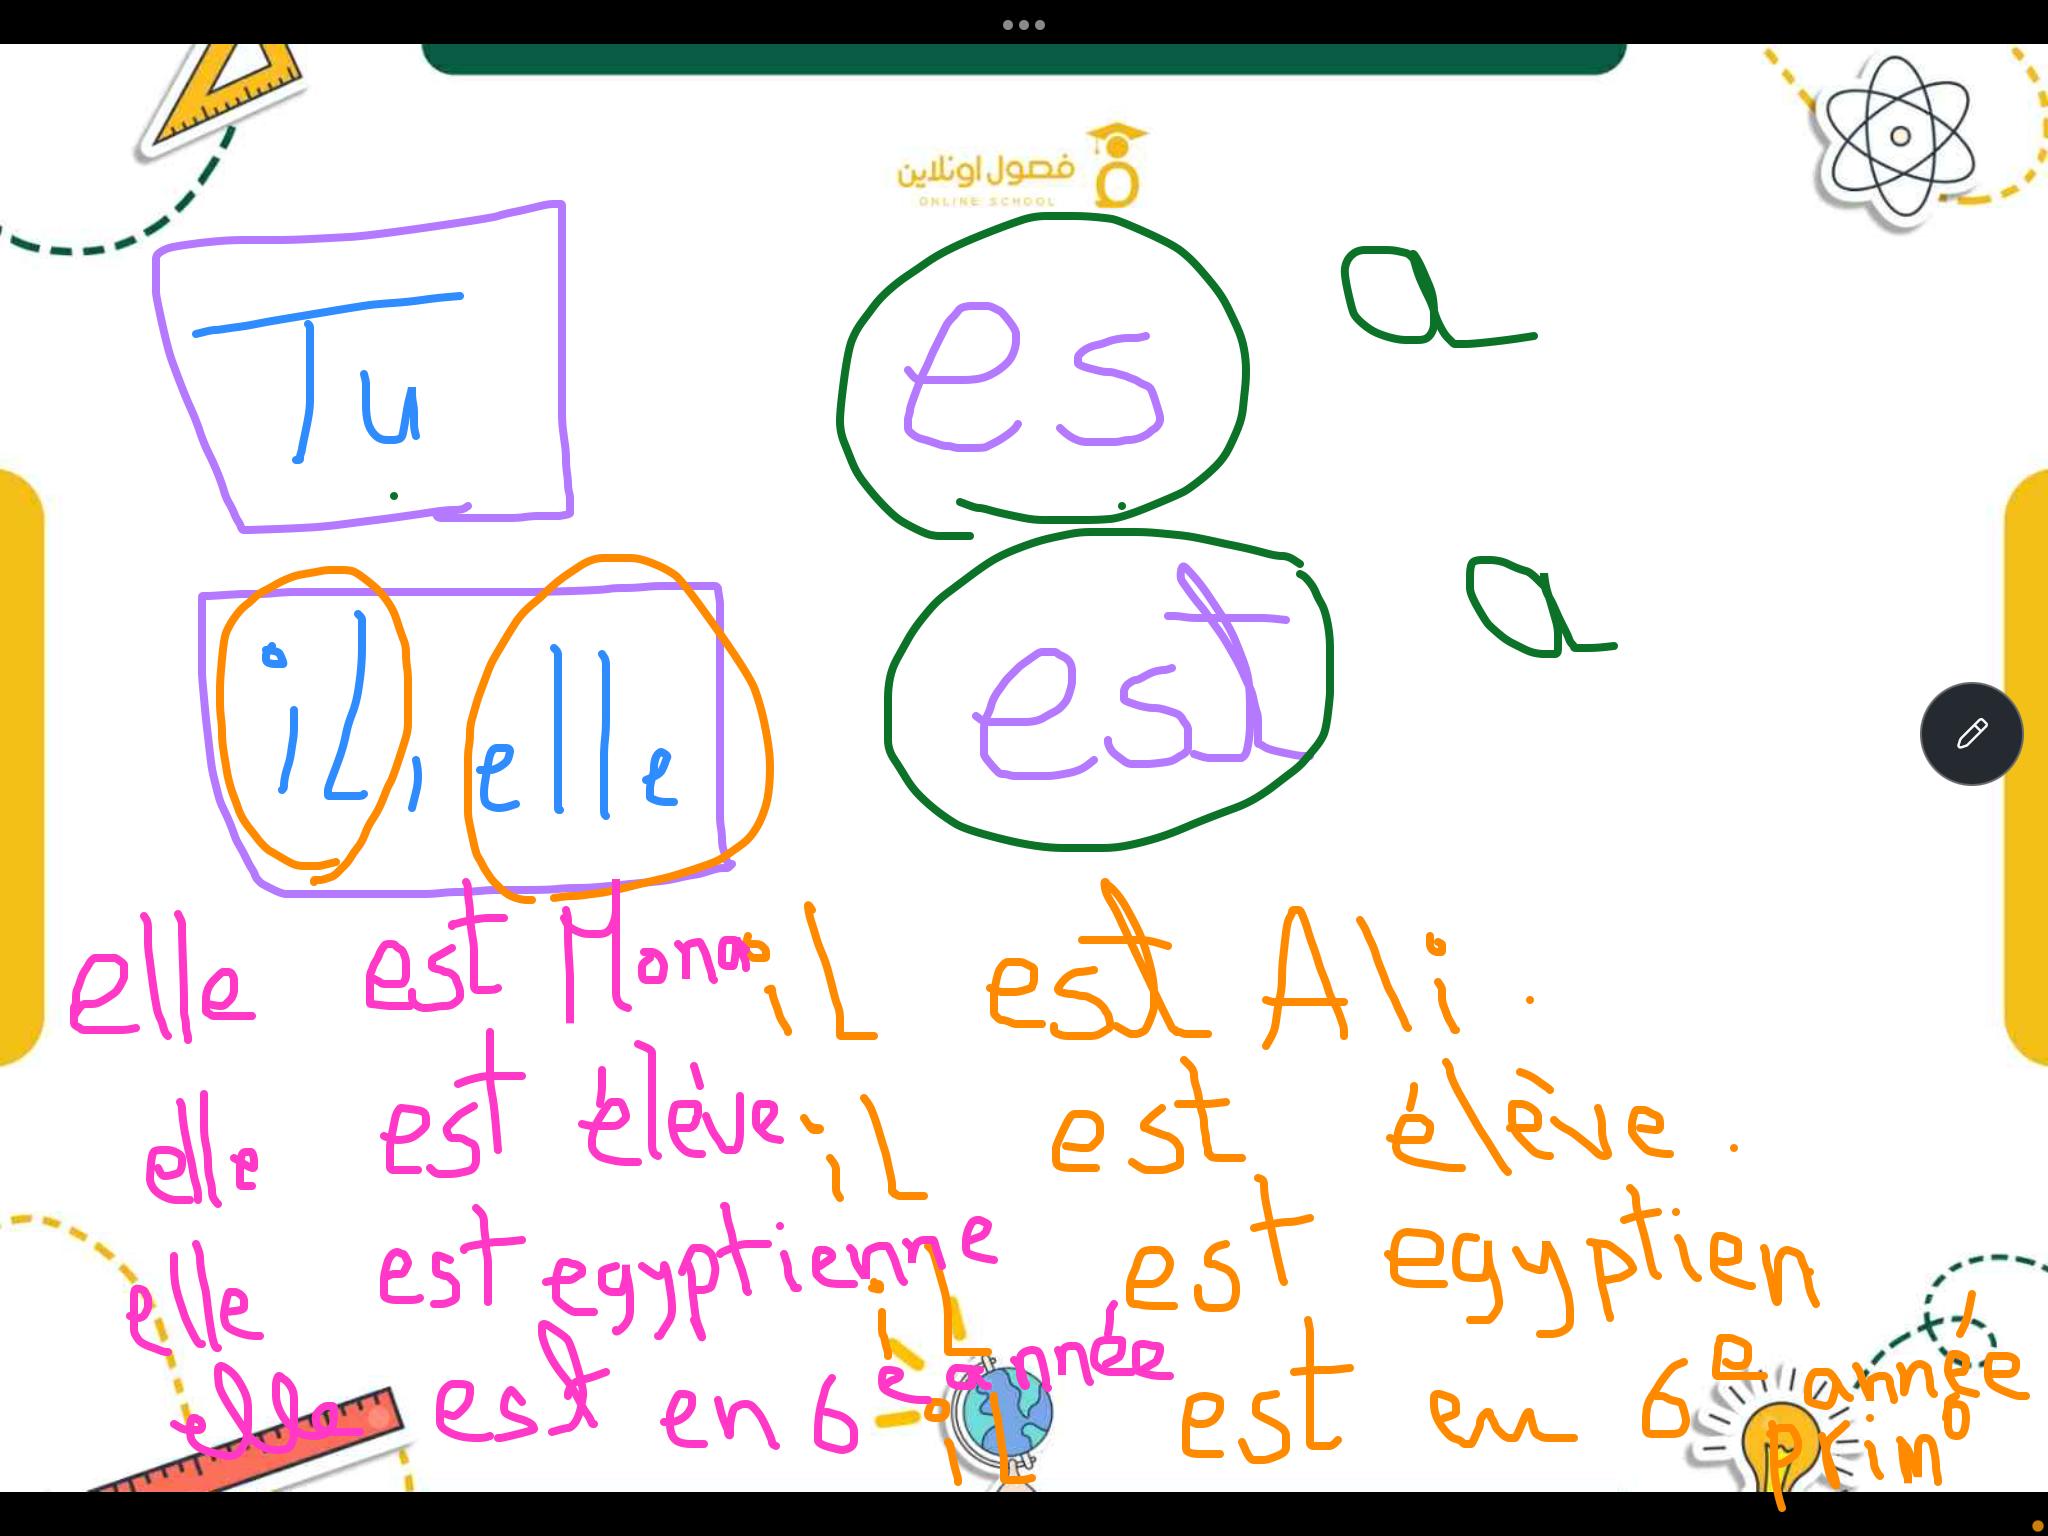 فصول اونلاين
ONLINE SCHOOL
Tu es a
il, elle est a
elle est Mona
il est Ali.
elle est élève
il est élève.
elle est egyptienne
il est egyptien
elle est en 6e année
il est en 6e année
prim